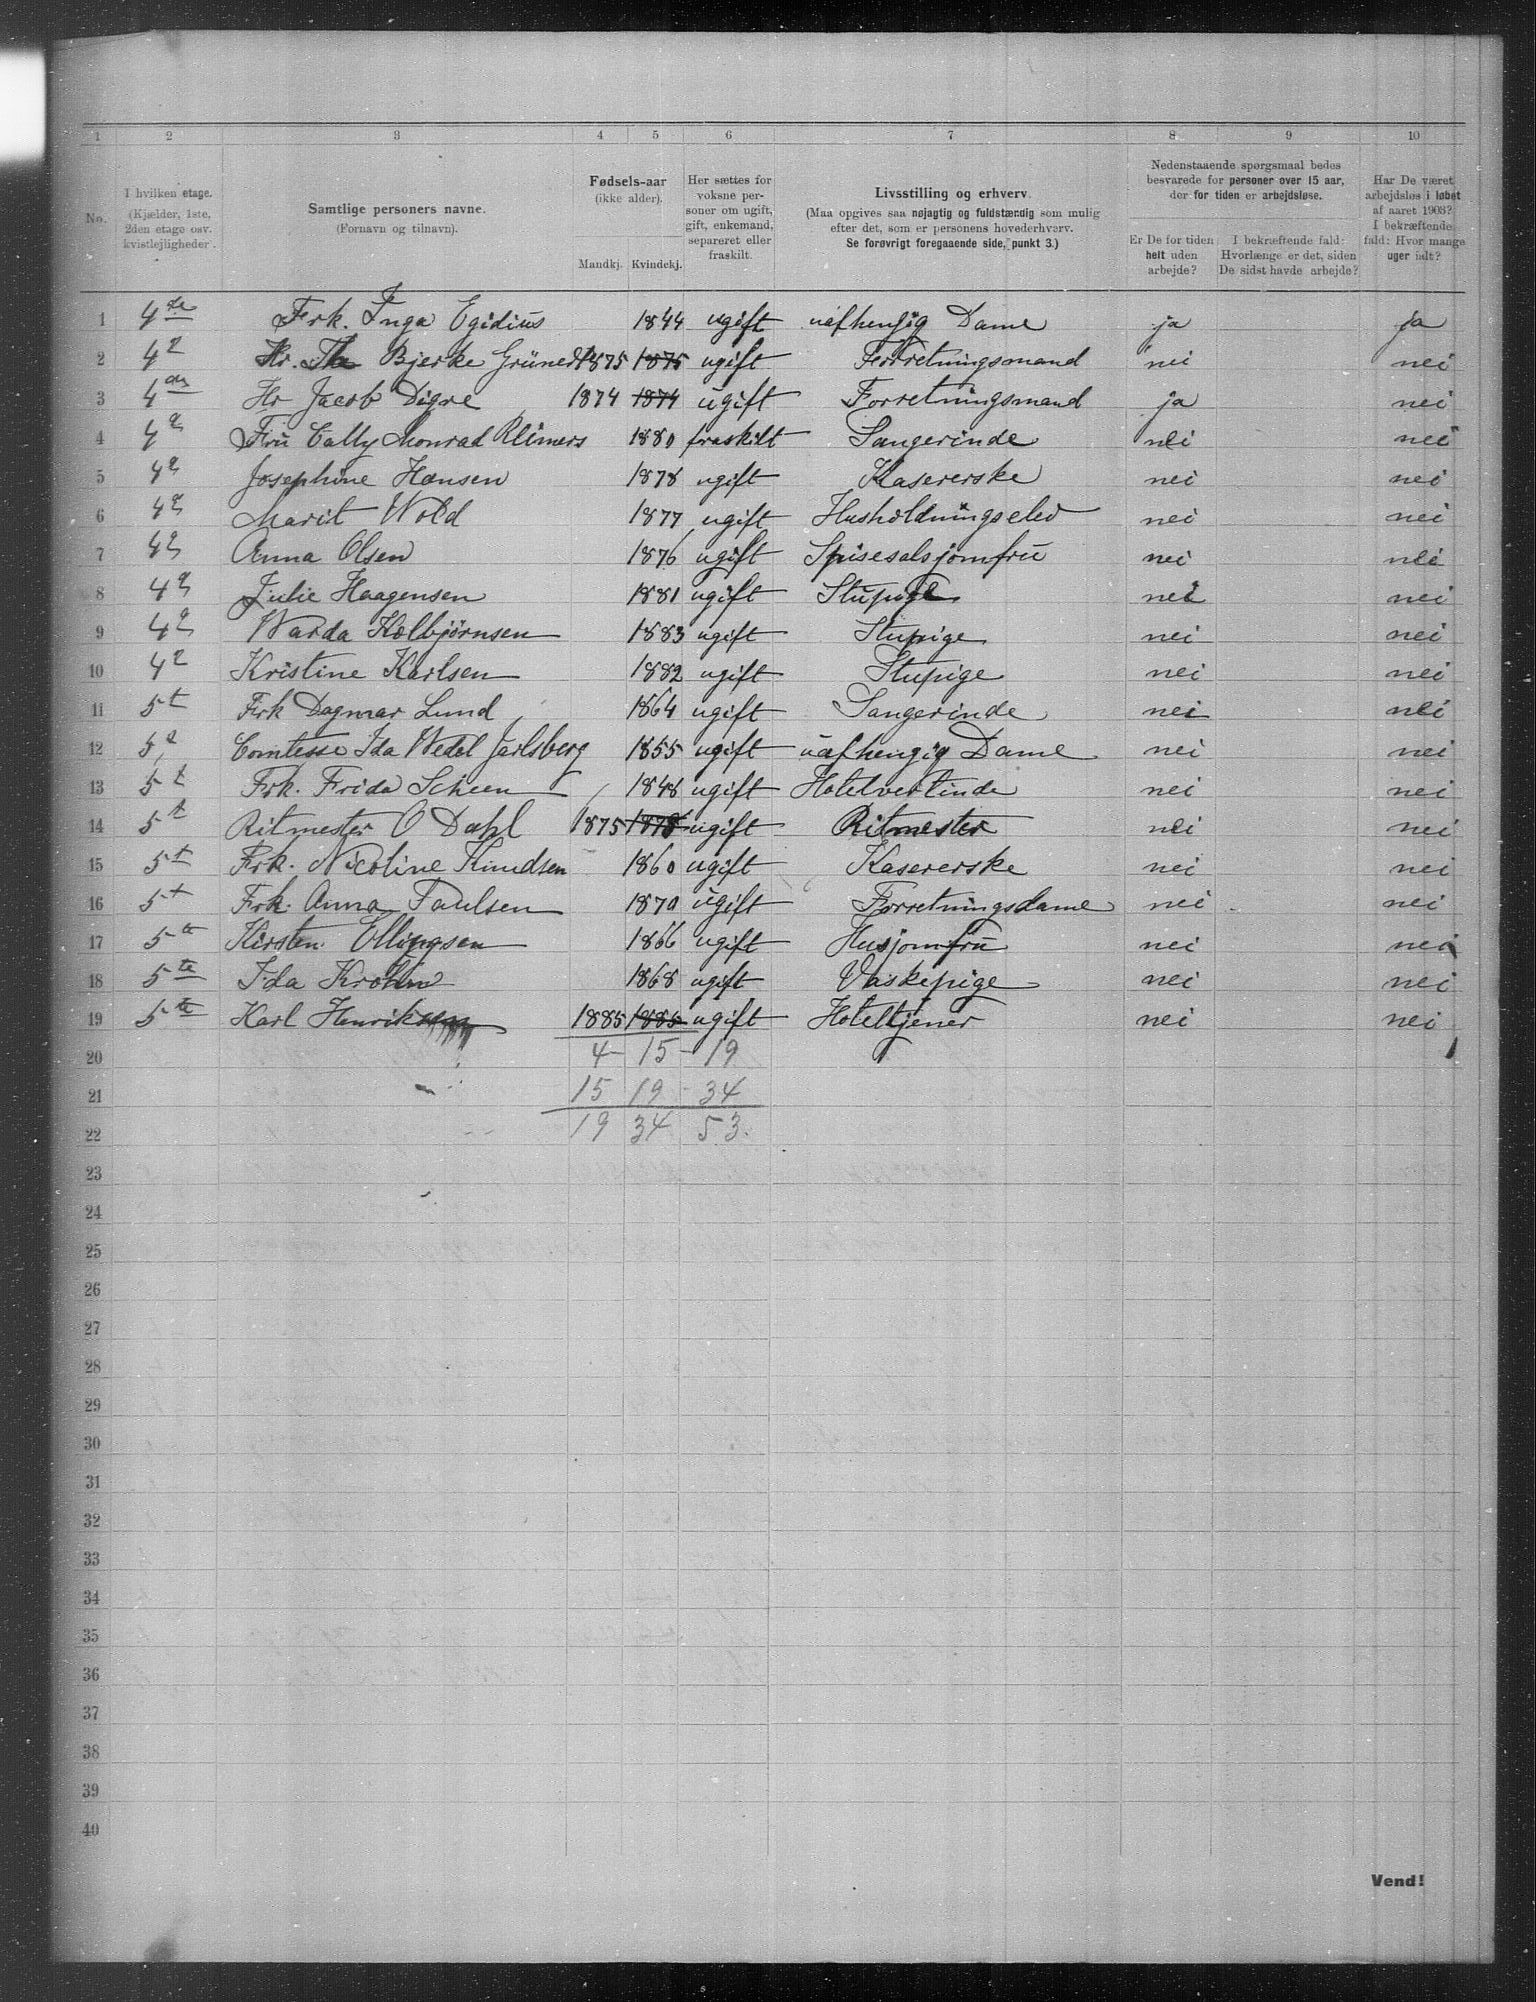 1 2 3 4 5 6 7 8 9 10
No.
I hvilken etage.
(Kjælder, 1ste,
2den etage osv.
kvistlejligheder.
Samtlige personers navne.
(Fornavn og tilnavn).
Fødsels-aar
(ikke alder).
Mandkj. Kvindekj.
Her sættes for
voksne per-
soner om ugift,
gift, enkemand,
separeret eller
fraskilt.
Livsstilling og erhverv.
(Maa opgives saa nøjagtig og fuldstændig som mulig
efter det, som er personens hovederhverv.
Se forøvrigt foregaaende side, punkt 3.)
Nedenstaaende spørgsmaal bedes
besvarede for personer over 15 aar,
der for tiden er arbejdsløse.
Er De for tiden
helt uden
arbejde?
I bekræftende fald:
Hvorlænge er det, siden
De sidst havde arbejde?
Har De været
arbejdsløs i løbet
af aaret 1903?
I bekræftende
fald: Hvor mange
uger idt?
1 4de Frk. Inga Egidius 1844 ugift uafhengig Dame ja ja
2 4de Hr. Bjerke 1875 1875 ugift Forretningsmand nei nei
3 4de Hr Jacob Digre 1874 1874 ugift Forretningsmand ja nei
4 4de Fru Cally Monrad Reimers 1880 fraskilt Sangerinde nei nei
5 4de Josephine Hansen 1878 ugift Kasererske nei nei
6 4de Marit Wold 1877 ugift Husholdningselev nei nei
7 4de Anna Olsen 1876 ugift Spisesalsjomfru nei nei
8 4de Julie Haagensen 1881 ugift Stupige nei nei
9 4de Warda Kolbjørnsen 1883 ugift Stupige nei nei
10 4de Kristine Karlsen 1882 ugift Stupige nei nei
11 5t Frk Dagmar Lund 1864 ugift Sangerinde nei nei
12 5t Comtesse Ida Wedel Jarlsberg 1855 ugift uafhengig Dame nei nei
13 5t Frk. Frida Scheen 1848 ugift Hotelvertinde nei nei
14 5t Ritmester O Dahl 1875 1875 ugift Ritmester nei nei
15 5t Frk. Nicoline Knudsen 1860 ugift Kasererske nei nei
16 5t Frk. Anna Paulsen 1870 ugift Forretningsdame nei nei
17 5te Kirsten Ellingsen 1866 ugift Husjomfru nei nei
18 5te Ida Krohn 1868 ugift Vaskepige nei nei
19 5te Karl Henriksen 1885 1885 ugift Hoteltjener nei nei
20 4 - 15 - 19
21 15 19 - 34
22 19 34 53.
23
24
25
26
27
28
29
30
31
32
33
34
35
36
37
38
39
40
Vend!